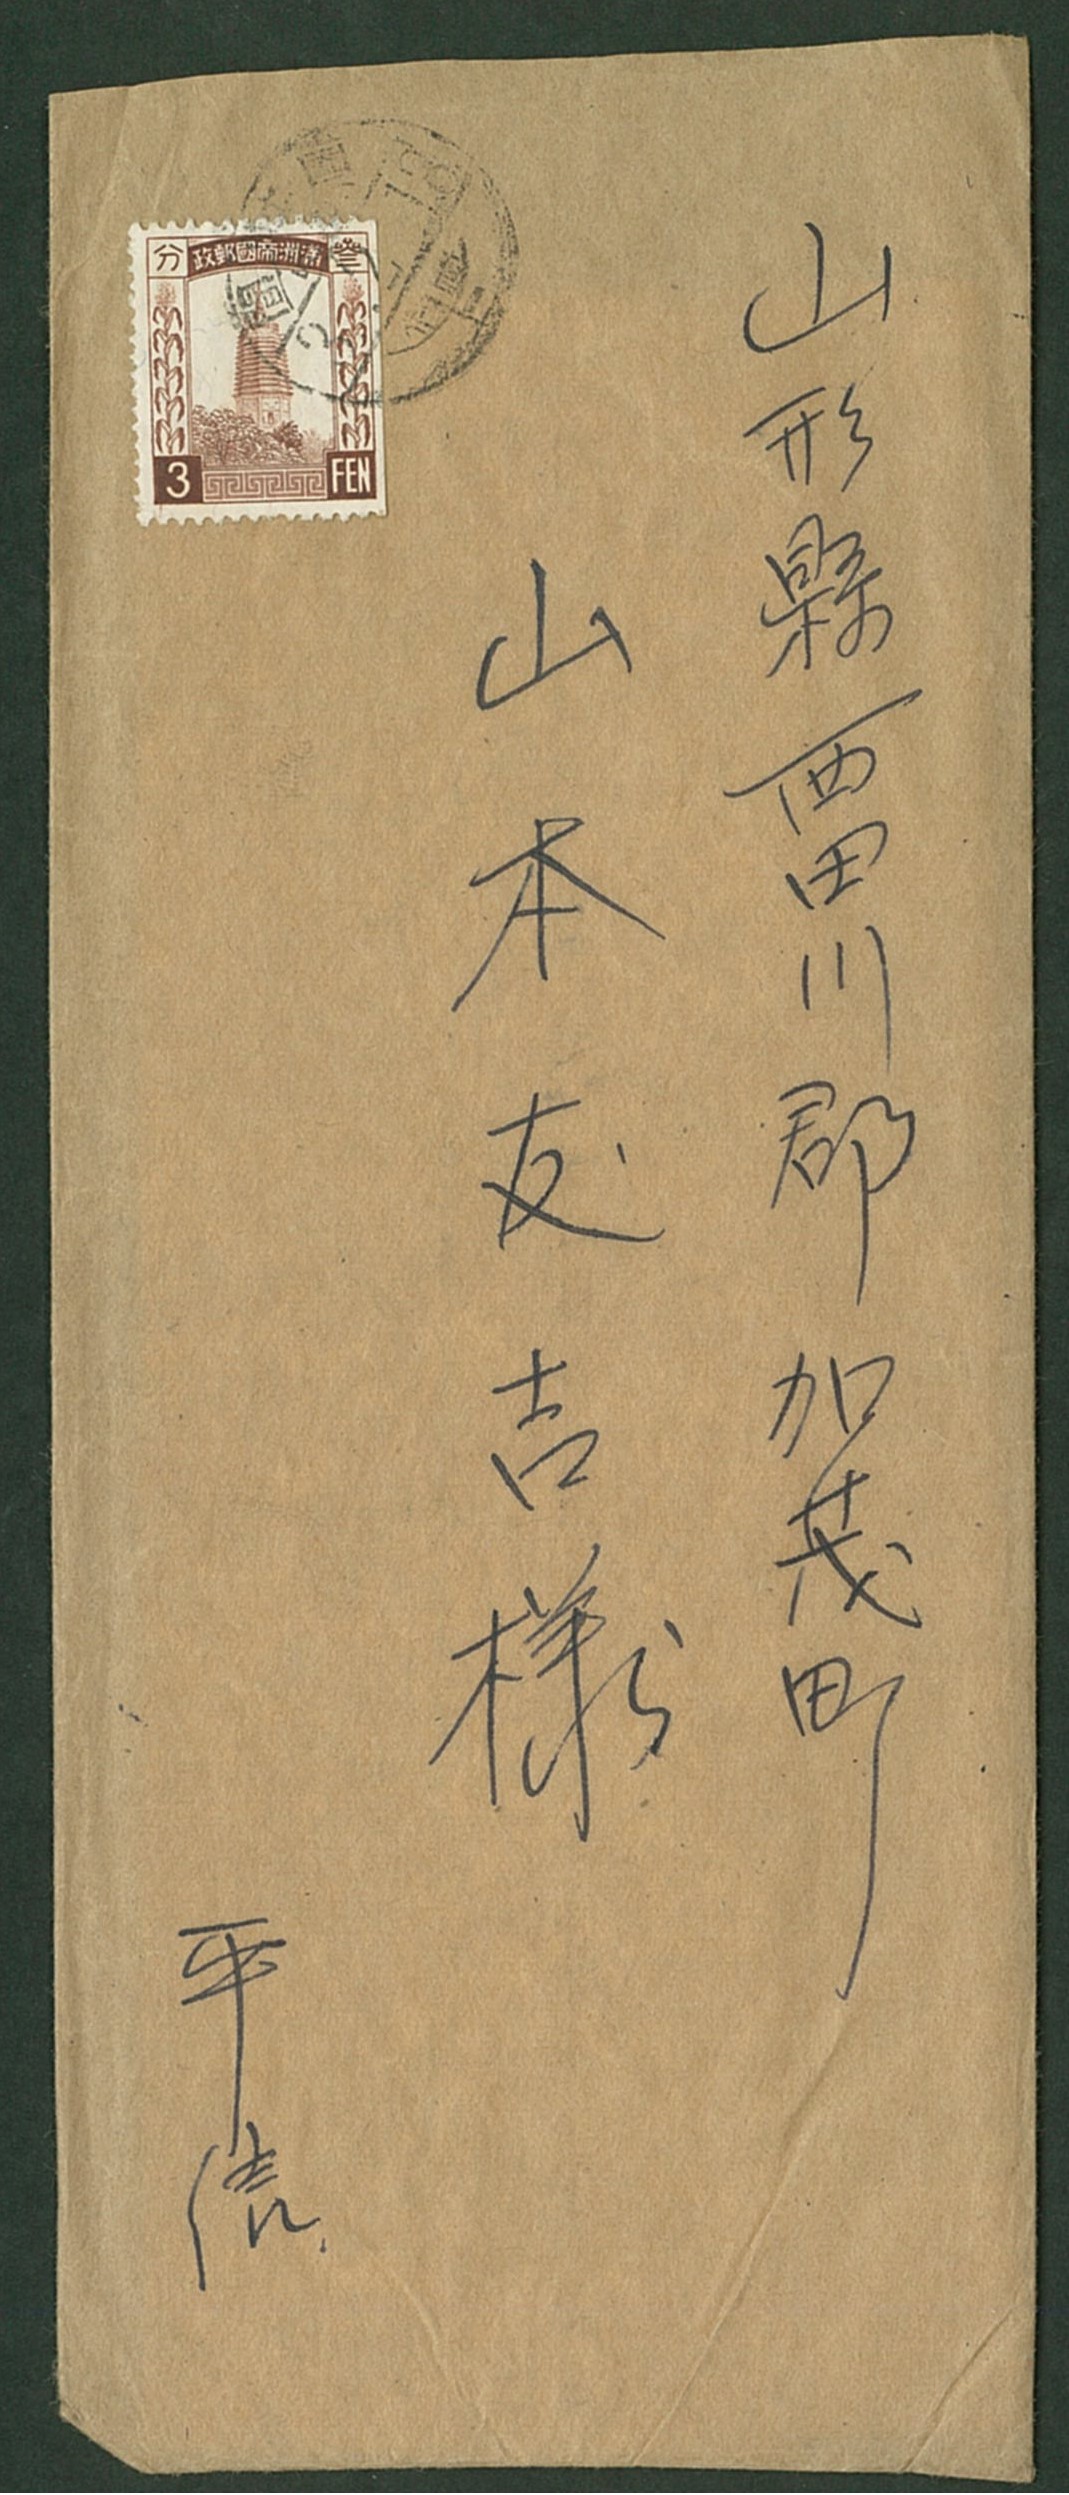 山形縣西田川郡加茂町
山本友吉様
平信
政郵國帝洲滿
分 叁
3 FEN